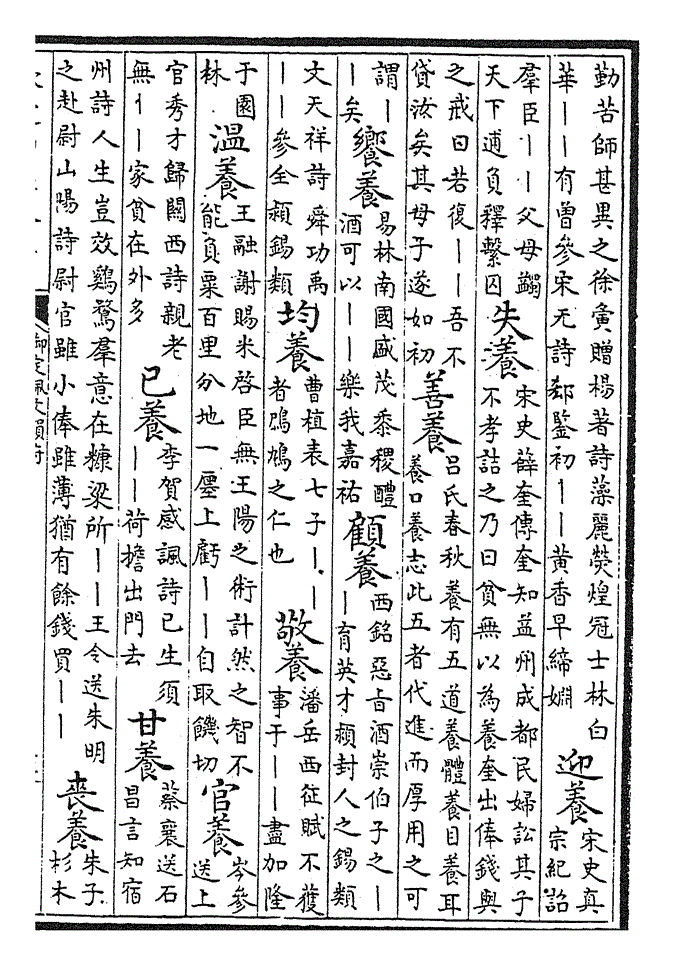 勤苦師甚異之徐夤贈楊著詩藻麗熒煌冠士林白
華丨丨有曾參宋无詩郄鑒初丨丨黃香早締婣
迎養
宋史真
宗紀詔
羣臣丨丨父母蠲
天下逋負釋繫囚
失養
宋史薛奎傳奎知益州成都民婦訟其子
不孝詰之乃曰貧無以為養奎出俸錢與
之戒曰若復丨丨吾不
貸汝矣其母子遂如初
善養
呂氏春秋養有五道養體養目養耳
養口養志此五者代進而厚用之可
謂丨
丨矣
饗養
易林南國盛茂黍稷醴
酒可以丨丨樂我嘉祐
顧養
西銘惡旨酒崇伯子之丨
丨育英才頴封人之錫類
文天祥詩舜功禹
丨丨參全頴錫類
均養
曹植表七子丨丨
者鳲鳩之仁也
敬養
潘岳西征賦不獲
事于丨丨盡加隆
于園
林
溫養
王融謝賜米啓臣無王陽之術計然之智不
能負粟百里分地一廛上虧丨丨自取饑切
官養
岑參
送上
官秀才歸關西詩親老
無丨丨家貧在外多
已養
李賀感諷詩已生須
丨丨荷擔出門去
甘養
蔡襄送石
昌言知宿
州詩人生豈效鷄鶩羣意在糠粱所丨丨王令送朱明
之赴尉山陽詩尉官雖小俸雖薄猶有餘錢買丨丨
喪養
朱子
杉木
御定佩文韻府